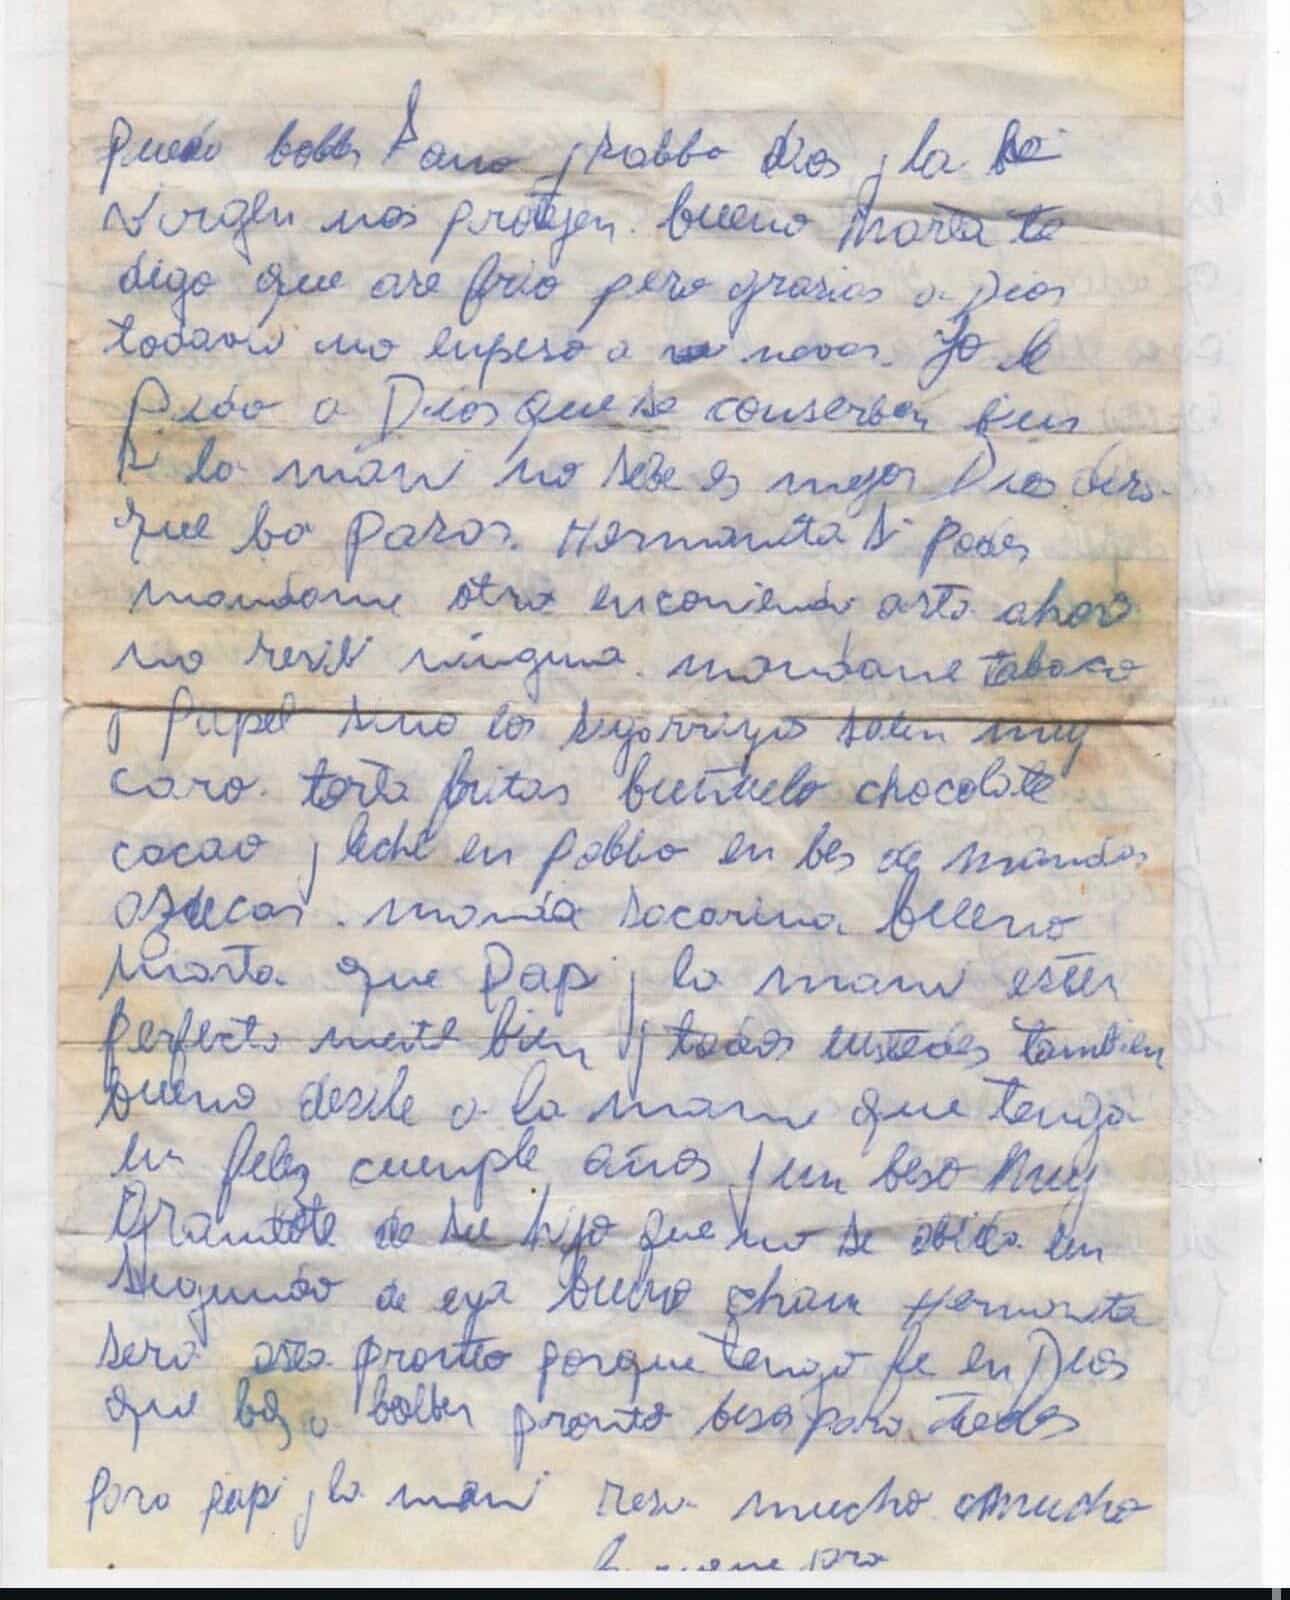 puedo bolber sano y salbo dios y la
Virgen nos protejen. bueno Marta te
digo que ase frio pero grasias a Dios
todavia no enpeso a nevar. Yo le
Pido a Dios que se conserben bien
Si la mami no sabe es mejor Dios dira
que ba pasar. Hermanita si podes
mandame otra encomienda asta ahora
no resibi ninguna. mandame tabaco
y papel sino los sigarriyos salen muy
caro. torta fritas buñuelo chocolate
cacao y leche en polbo en bes de mandar
azucar. manda sacarina bueno
Marta que Papi y la mami esten
perfecta mente bien y todos ustedes tambien
bueno desile a la mami que tenga
un feliz cumple años y un beso muy
Grandote de su hijo que no se olbida un
segundo de eya bueno chau Hermanita
sera asta pronto porque tengo fe en Dios
que boy a bolber pronto besos para todos
para papi y la mami resa mucho mucho
que para